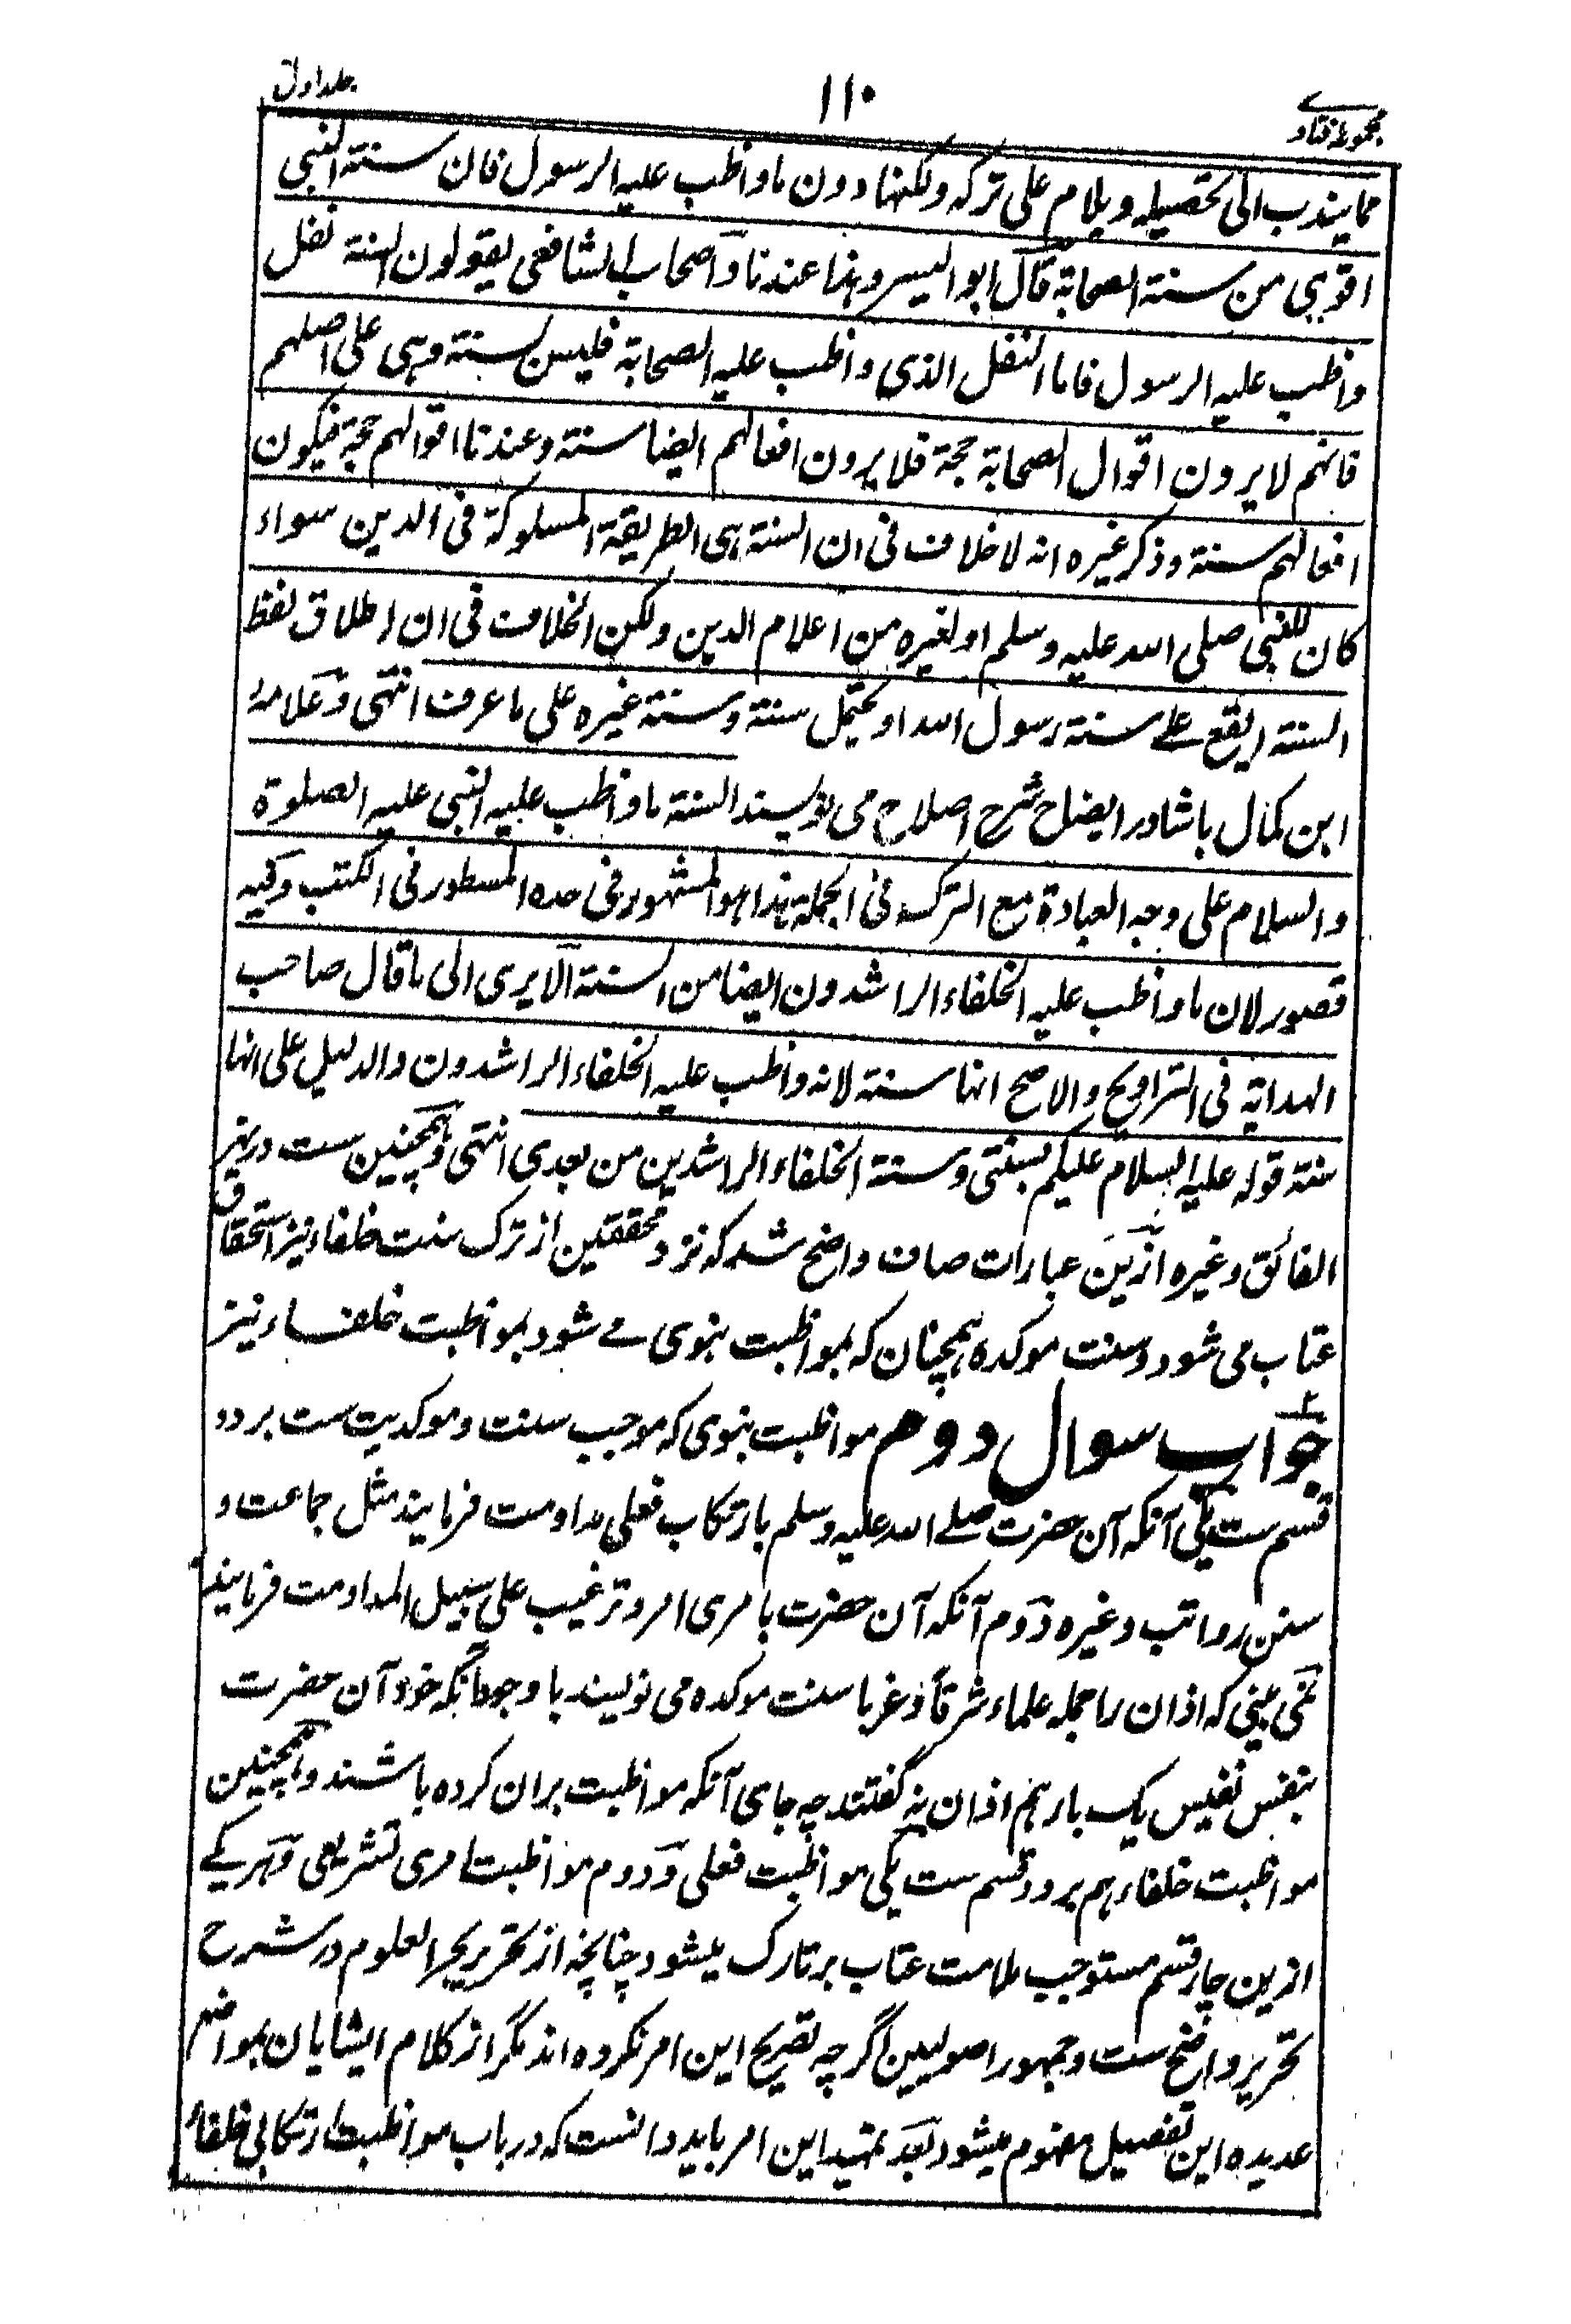 مجموعه فتاوے
۱۱۰
جلد اول
مما يندب الى تحصيله ويلام على تركه ولكنها دون ما واظب عليه الرسول فان سنة النبى
اقوى من سنة الصحابة قال ابو اليسر وهذا عندنا واصحاب الشافعى يقولون السنة نفل
واظب عليه الرسول فاما النفل الذى واظب عليه الصحابة فليس بسنة وهى على اصلهم
فانهم لا يرون اقوال الصحابة حجة فلا يرون افعالهم ايضا سنة وعندنا اقوالهم حجة فيكون
افعالهم سنة وذكر غيره انه لا خلاف فى ان السنة هى الطريقة المسلوكة فى الدين سواء
كان للنبى صلى الله عليه وسلم او لغيره من اعلام الدين ولكن الخلاف فى ان اطلاق لفظ
السنة ايقع على سنة رسول الله او يحتمل سنة وسنة غيره على ما عرف انتهى وعلامه
ابن كمال باشا در ايضاح شرح اصلاح مى نويسند السنة ما واظب عليه النبى عليه الصلوة
والسلام على وجه العبادة مع الترك فى الجملة هذا هو المشهور فى حده المسطور فى الكتب وفيه
قصور لان ما واظب عليه الخلفاء الراشدون ايضا من السنة الا يرى الى ما قال صاحب
الهداية فى التراويح والاصح انها سنة لانه واظب عليه الخلفاء الراشدون والدليل على انها
سنة قوله عليه السلام عليكم بسنتى وسنة الخلفاء الراشدين من بعدى انتهى وهمچنين ست در نهر
الفائق وغيره ازين عبارات صاف واضح شد كه نزد محققين از ترك سنت خلفاء نيز استحقاق
عتاب مى شود وسنت موكده همچنان كه بمواظبت نبوى مے شود بمواظبت خلفاء نيز
جواب سوال دوم مواظبت نبوى كه موجب سنت وموكديت ست بر دو
قسم ست يكى آنكه آن حضرت صلے الله عليه وسلم بارتكاب فعلى مداومت فرمايند مثل جماعت و
سنن رواتب وغيره دوم آنكه آن حضرت بامرى امر وترغيب على سبيل المداومت فرمايند
نمى بينى كه اذان را جمله علماء شرقا وغربا سنت موكده مى نويسند با وجود آنكه خود آن حضرت
بنفس نفيس يك بار هم اذان نه گفتند چه جاى آنكه مواظبت بران كرده باشند وهمچنين
مواظبت خلفاء هم بر دو قسم ست يكى مواظبت فعلى ودوم مواظبت امرى تشريعى وهر يكے
ازين چار قسم مستوجب ملامت عتاب بر تارك ميشود چنانچه از تحرير بحر العلوم در شرح
تحرير واضح ست وجمهور اصوليين اگر چه تصريح اين امر نكرده اند مگر از كلام ايشايان بمواضع
عديده اين تفصيل مفهوم ميشود بعد تمهيد اين امر بايد دانست كه در باب مواظبت ارتكابى خلفاء